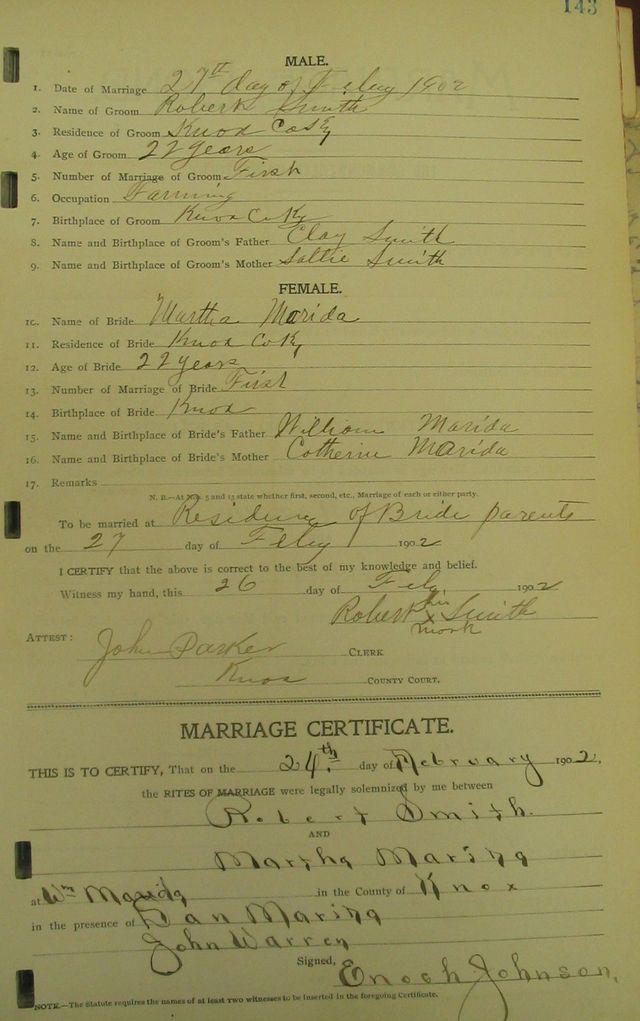 143
MALE.
1. Date of Marriage 27th day of Feby 1902
2. Name of Groom Robert Smith
3. Residence of Groom Knox Co Ky
4. Age of Groom 22 years
5. Number of Marriage of Groom First
6. Occupation Farming
7. Birthplace of Groom Knox Co Ky
8. Name and Birthplace of Groom's Father Clay Smith
9. Name and Birthplace of Groom's Mother Sallie Smith
FEMALE.
10. Name of Bride Martha Marida
11. Residence of Bride Knox Co Ky
12. Age of Bride 22 years
13. Number of Marriage of Bride First
14. Birthplace of Bride Knox
15. Name and Birthplace of Bride's Father William Marida
16. Name and Birthplace of Bride's Mother Catherine Marida
17. Remarks
N. B.—At Nos. 5 and 13 state whether first, second, etc., Marriage of each or either party.
To be married at Residence of Bride parents
on the 27 day of Feby 1902
I CERTIFY that the above is correct to the best of my knowledge and belief.
Witness my hand, this 26 day of Feby 1902
Robert his x mark Smith
ATTEST:
John Parker CLERK
Knox COUNTY COURT.
MARRIAGE CERTIFICATE.
THIS IS TO CERTIFY, That on the 24th. day of February 1902,
the RITES OF MARRIAGE were legally solemnized by me between
Robert Smith.
AND
Martha
at Wm in the County of Knox
in the presence of Dan
John Warren
Signed, Enoch Johnson,
NOTE.—The Statute requires the names of at least two witnesses to be inserted in the foregoing Certificate.